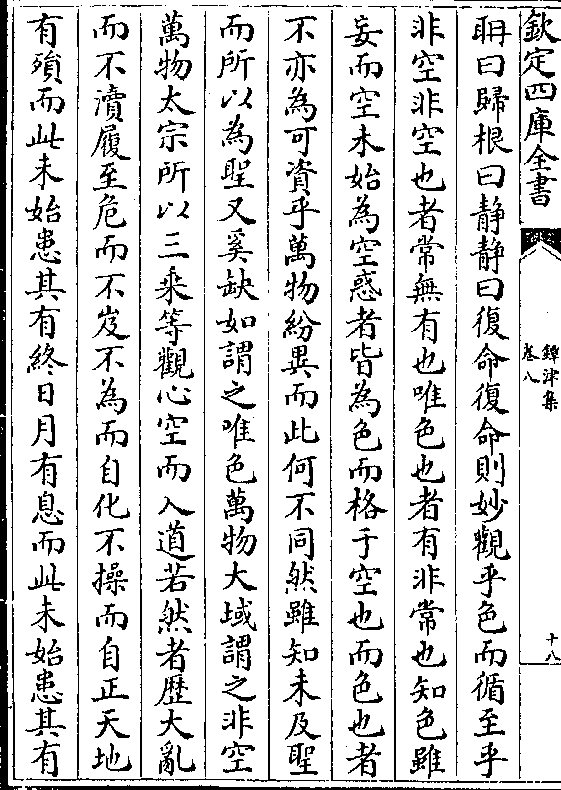 欽定四庫全書
鐔津集
卷八
十八
冊曰歸根曰靜靜曰復命復命則妙觀乎色而循至乎
非空非空也者常無有也唯色也者有非常也知色雖
妄而空未始為空惑者皆為色而格于空也而色也者
不亦為可資乎萬物紛異而此何不同然雖知未及聖
而所以為聖又奚缺如謂之唯色萬物大域謂之非空
萬物太宗所以三乘等觀心空而入道若然者歴大亂
而不瀆履至危而不岌不為而自化不操而自正天地
有殞而此未始患其有終日月有息而此未始患其有